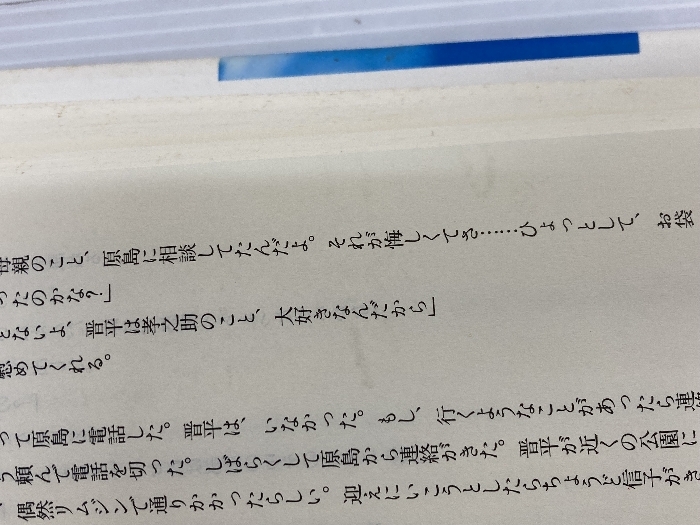 母親のこと、原島に相談してたんだよ。それが悔しくてさ……ひょっとして、お袋
ったのかな?」
とないよ、晋平は孝之助のこと、大好きなんだから」
慰めてくれる。
って原島に電話した。晋平は、いなかった。もし、行くようなことがあったら連絡
う頼んで電話を切った。しばらくして原島から連絡がきた。晋平が近くの公園に
偶然リムジンで通りかかったらしい。迎えにいこうとしたらちょうど信子がき